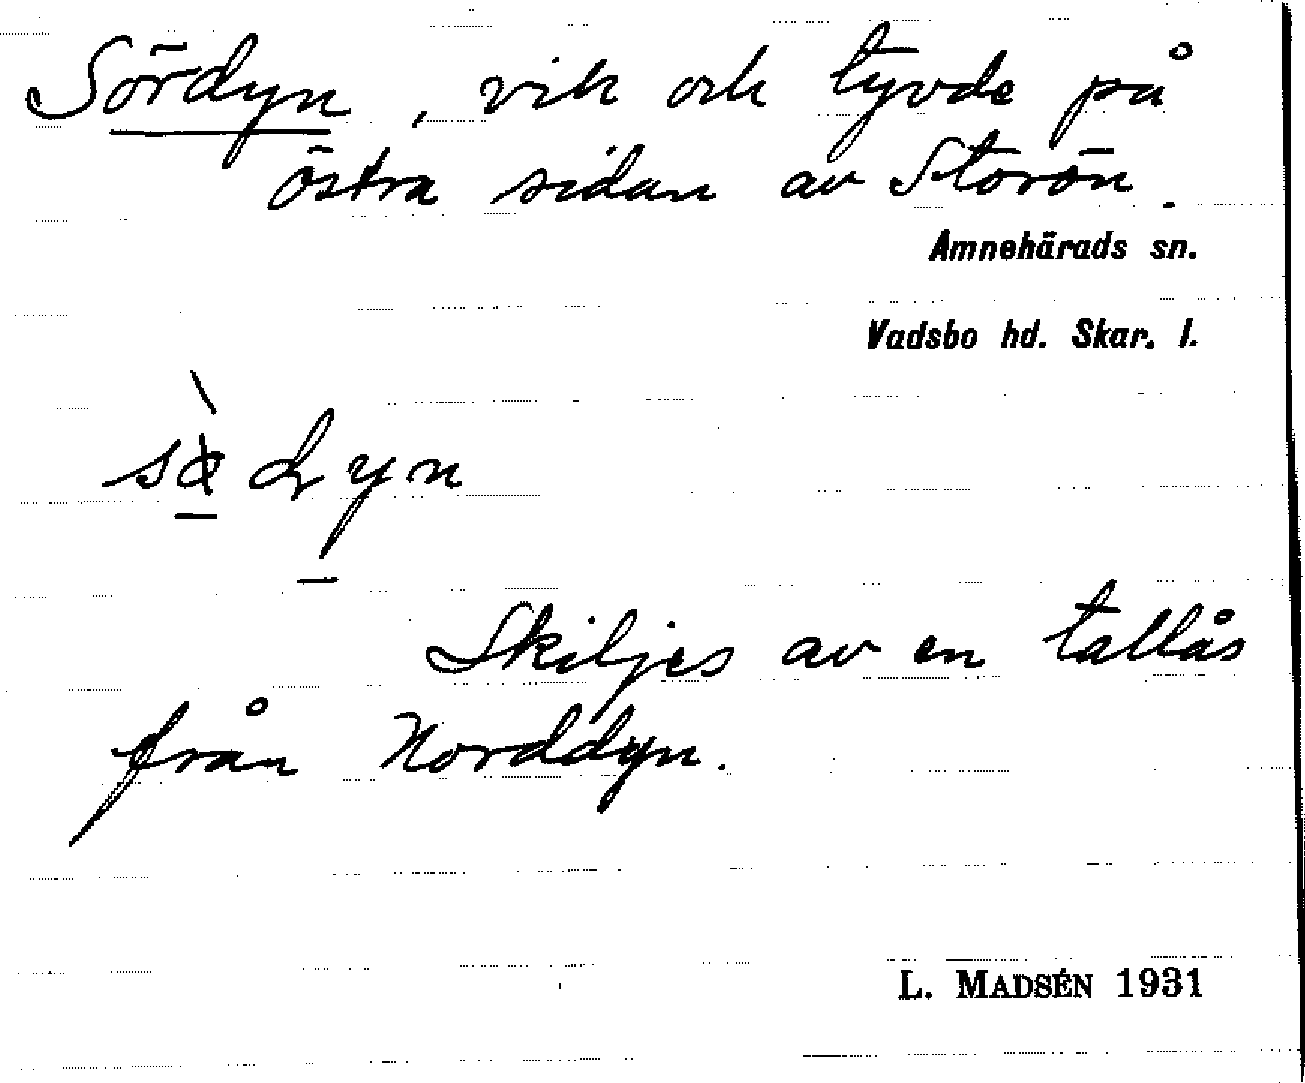 Sördyn, vik och tyvde på
östra sidan av Storön.
Amnehärads sn.
Vadsbo hd. Skar. l.
Skiljes av en tallås
från Norddyn.
L. MADSÉN 1931